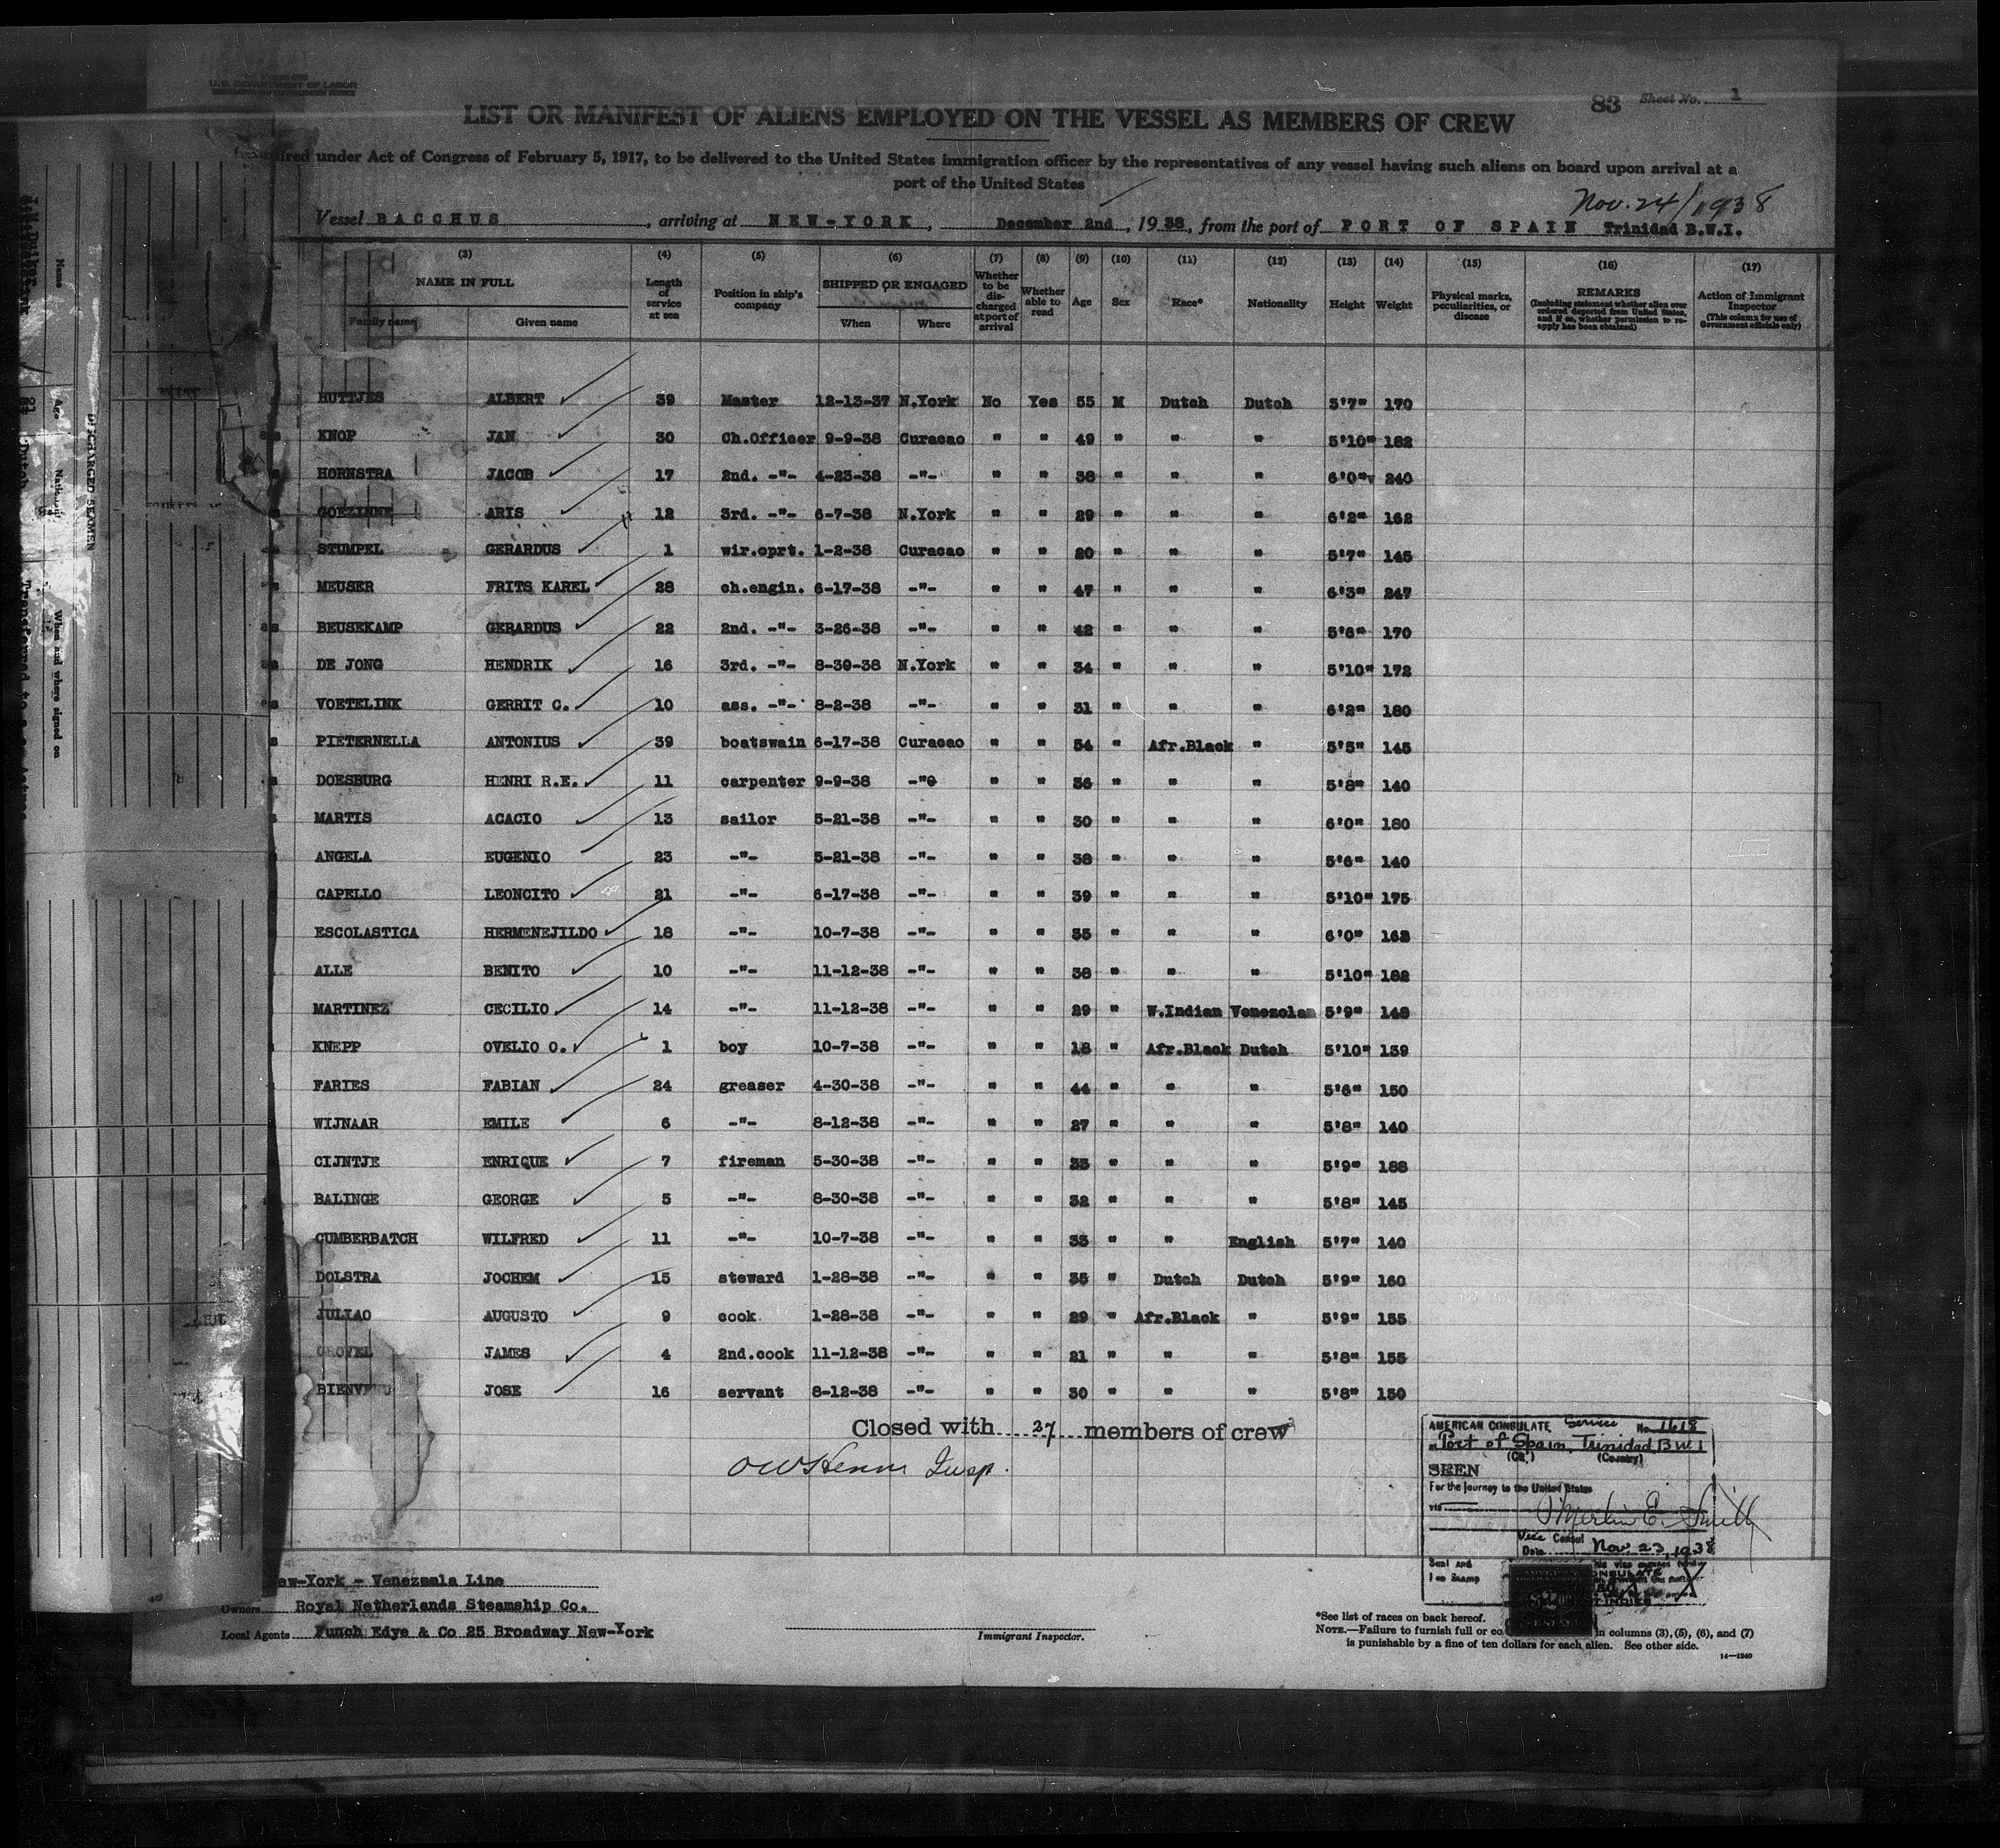 U.S. DEPARTMENT OF LABOR
83 Sheet No. 1
LIST OR MANIFEST OF ALIENS EMPLOYED ON THE VESSEL AS MEMBERS OF CREW
under Act of Congress of February 5, 1917, to be delivered to the United States immigration officer by the representatives of any vessel having such aliens on board upon arrival at a
port of the United States
Nov. 24/1938
Vessel BACCHUS, arriving at NEW-YORK, December 2nd, 1938, from the port of PORT OF SPAIN Trinidad B.W.I.
(3) (4) (5) (6) (7) (8) (9) (10) (11) (12) (13) (14) (15) (16) (17)
NAME IN FULL Length of service at sea Position in ship's company SHIPPED OR ENGAGED Whether to be discharged at port of arrival Whether able to read Age Sex Race* Nationality Height Weight Physical marks, peculiarities, or disease REMARKS (Including statement whether alien ever ordered deported from United States, and if so, whether permission to reapply has been obtained) Action of Immigrant Inspector (This column for use of Government officials only)
Family name Given name When Where
HUTTJES ALBERT 39 Master 12-13-37 N.York No Yes 55 M Dutch Dutch 5'7" 170
KNOP JAN 30 Ch.Officer 9-9-38 Curacao " " 49 " " " 5'10" 182
HORNSTRA JACOB 17 2nd. -"- 4-23-38 -"- " " 38 " " " 6'0" 240
GOEZINNE ARIS 12 3rd. -"- 6-7-38 N.York " " 29 " " " 6'2" 162
STUMPEL GERARDUS 1 wir.oprt. 1-2-38 Curacao " " 20 " " " 5'7" 145
MEUSER FRITS KAREL 28 ch.engin. 6-17-38 -"- " " 47 " " " 6'3" 247
BEUSEKAMP GERARDUS 22 2nd. -"- 3-26-38 -"- " " 42 " " " 5'6" 170
DE JONG HENDRIK 16 3rd. -"- 8-30-38 N.York " " 34 " " " 5'10" 172
VOETELINK GERRIT C. 10 ass. -"- 8-2-38 -"- " " 31 " " " 6'2" 180
PIETERNELLA ANTONIUS 39 boatswain 6-17-38 Curacao " " 54 " Afr.Black " 5'5" 145
DOESBURG HENRI R.E. 11 carpenter 9-9-38 -"- " " 36 " " " 5'8" 140
MARTIS ACACIO 13 sailor 5-21-38 -"- " " 30 " " " 6'0" 180
ANGELA EUGENIO 23 -"- 5-21-38 -"- " " 38 " " " 5'6" 140
CAPELLO LEONCITO 21 -"- 6-17-38 -"- " " 39 " " " 5'10" 175
ESCOLASTICA HERMENEJILDO 18 -"- 10-7-38 -"- " " 35 " " " 6'0" 162
ALLE BENITO 10 -"- 11-12-38 -"- " " 38 " " " 5'10" 182
MARTINEZ CECILIO 14 -"- 11-12-38 -"- " " 29 " W.Indian Venezolan 5'9" 148
KNEPP OVELIO O. 1 boy 10-7-38 -"- " " 18 " Afr.Black Dutch 5'10" 159
FARIES FABIAN 24 greaser 4-30-38 -"- " " 44 " " " 5'6" 150
WIJNAAR EMILE 6 -"- 8-12-38 -"- " " 27 " " " 5'8" 140
CIJNTJE ENRIQUE 7 fireman 5-30-38 -"- " " 33 " " " 5'9" 188
BALINGE GEORGE 5 -"- 8-30-38 -"- " " 32 " " " 5'8" 145
CUMBERBATCH WILFRED 11 -"- 10-7-38 -"- " " 33 " " English 5'7" 140
DOLSTRA JOCHEM 15 steward 1-28-38 -"- " " 35 " Dutch Dutch 5'9" 160
JULIAO AUGUSTO 9 cook 1-28-38 -"- " " 29 " Afr.Black " 5'9" 155
JAMES 4 2nd.cook 11-12-38 -"- " " 21 " " " 5'8" 155
BIENVENU JOSE 16 servant 8-12-38 -"- " " 30 " " " 5'8" 150
Closed with 27 members of crew
Insp.
AMERICAN CONSULATE Service No. 1618
Port of Spain, Trinidad, B.W.I
(City) (Country)
SEEN
For the journey to the United States
via
Merlin E. Smith
Vice Consul
Date Nov. 23, 1938
Seal and
New-York - Venezuela Line
Owners Royal Netherlands Steamship Co.
Local Agents Funch Edye & Co 25 Broadway New-York
Immigrant Inspector.
*See list of races on back hereof.
NOTE.—Failure to furnish full or co in columns (3), (5), (6), and (7)
is punishable by a fine of ten dollars for each alien. See other side.
14—1240
DISCHARGED SEAMEN
Name
Age
When and where signed on